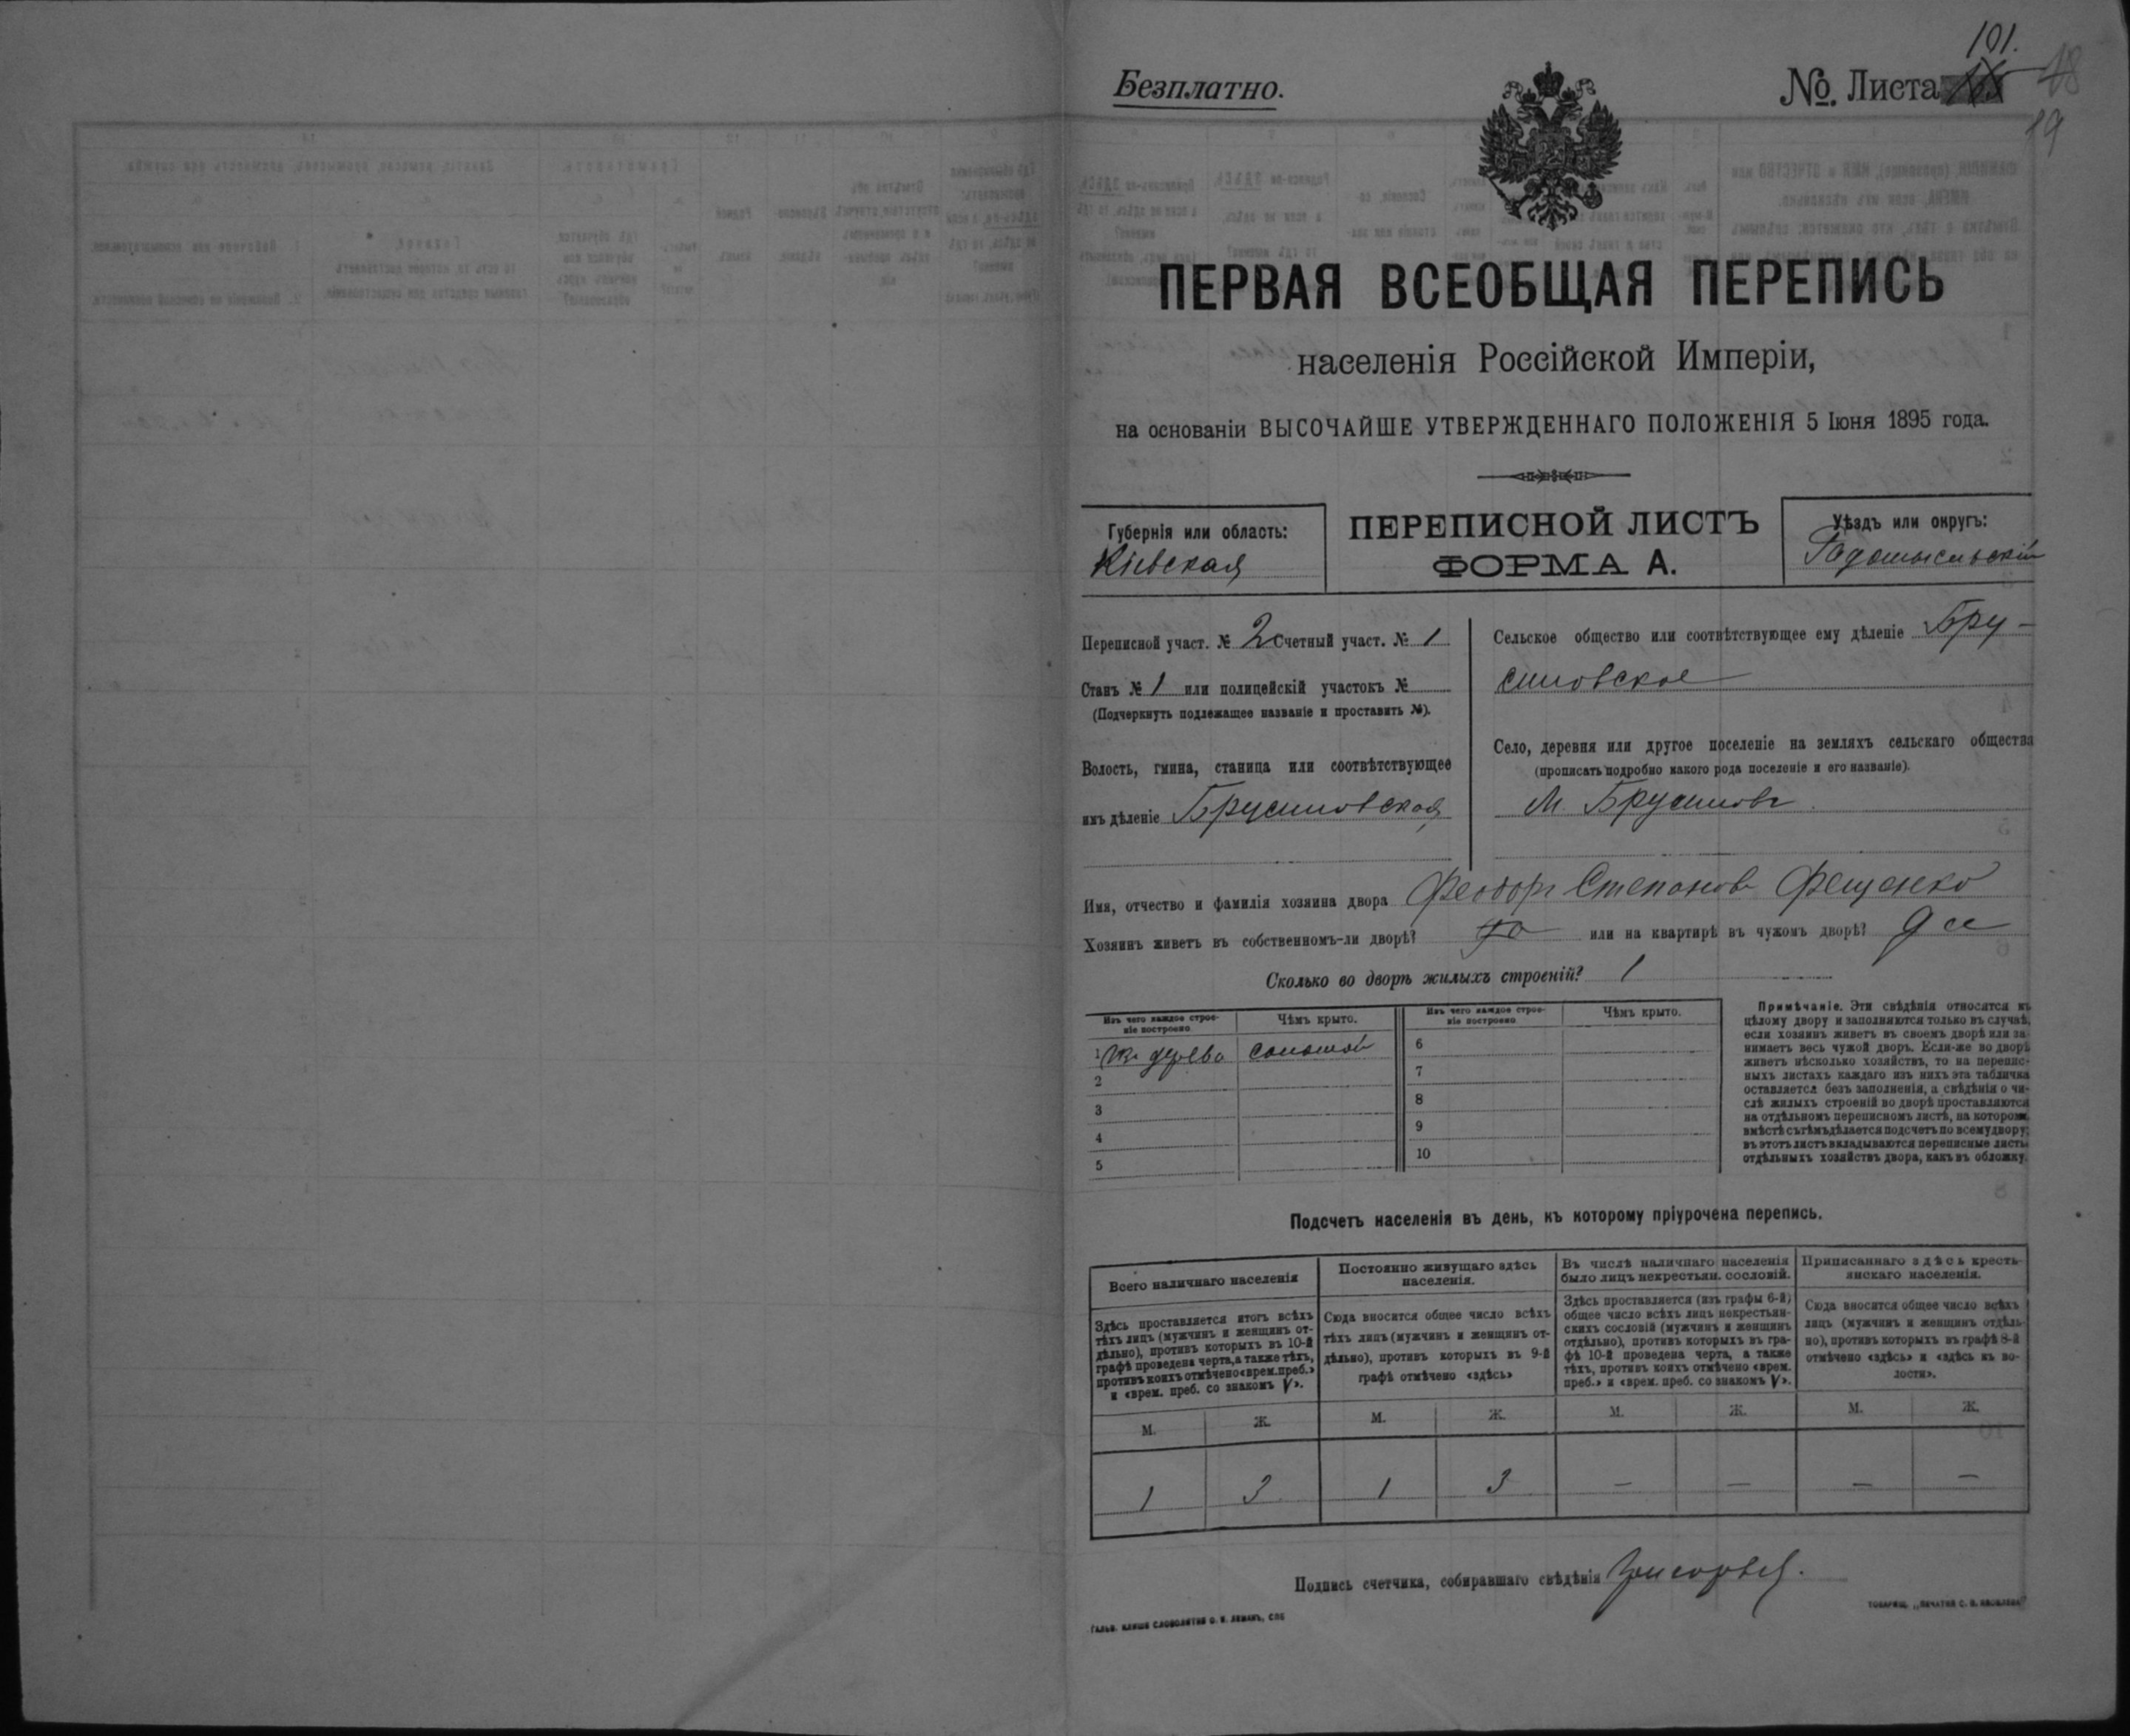 101.
Безплатно.
№. Листа
18
19
ПЕРВАЯ ВСЕОБЩАЯ ПЕРЕПИСЬ
населенія Россійской Имперіи,
на основаніи ВЫСОЧАЙШЕ УТВЕРЖДЕННАГО ПОЛОЖЕНІЯ 5 Іюня 1895 года.
Губернія или область:
Кіевская
ПЕРЕПИСНОЙ ЛИСТЪ
ФОРМА А.
Уѣздъ или округъ:
Радомысльскій
Переписной участ. № 2 Счетный участ. № 1
Станъ № 1 или полицейскій участокъ №
(Подчеркнуть подлежащее названіе и проставить №).
Волость, гмина, станица или соотвѣтствующее
имъ дѣленіе Брусиловская
Сельское общество или соотвѣтствующее ему дѣленіе Бру-
силовское
Село, деревня или другое поселеніе на земляхъ сельскаго общества
(прописать подробно какого рода поселеніе и его названіе).
М. Брусиловъ
Имя, отчество и фамилія хозяина двора Феодоръ Степановъ Фещенко
Хозяинъ живетъ въ собственномъ-ли дворѣ? да или на квартирѣ въ чужомъ дворѣ? да
Сколько во дворѣ жилыхъ строеній? 1
Изъ чего каждое строе-
ніе построено
Чѣмъ крыто.
Изъ чего каждое строе-
ніе построено
Чѣмъ крыто.
1 Изъ дерева соломой
2
3
4
5
6
7
8
9
10
Примѣчаніе. Эти свѣдѣнія относятся къ
цѣлому двору и заполняются только въ случаѣ,
если хозяинъ живетъ въ своемъ дворѣ или за-
нимаетъ весь чужой дворъ. Если-же во дворѣ
живетъ нѣсколько хозяйствъ, то на перепис-
ныхъ листахъ каждаго изъ нихъ эта табличка
оставляется безъ заполненія, а свѣдѣнія о чи-
слѣ жилыхъ строеній во дворѣ проставляются
на отдѣльномъ переписномъ листѣ, на которомъ
вмѣстѣ съ тѣмъ дѣлается подсчетъ по всему двору;
въ этотъ листъ вкладываются переписные листы
отдѣльныхъ хозяйствъ двора, какъ въ обложку.
Подсчетъ населенія въ день, къ которому пріурочена перепись.
Всего наличнаго населенія
Здѣсь проставляется итогъ всѣхъ
тѣхъ лицъ (мужчинъ и женщинъ от-
дѣльно), противъ которыхъ въ 10-й
графѣ проведена черта, а также тѣхъ,
противъ коихъ отмѣчено «врем. преб.»
и «врем. преб. со знакомъ V».
Постоянно живущаго здѣсь
населенія.
Сюда вносится общее число всѣхъ
тѣхъ лицъ (мужчинъ и женщинъ от-
дѣльно), противъ которыхъ въ 9-й
графѣ отмѣчено «здѣсь»
Въ числѣ наличнаго населенія
было лицъ некрестьян. сословій.
Здѣсь проставляется (изъ графы 6-й)
общее число всѣхъ лицъ некрестьян-
скихъ сословій (мужчинъ и женщинъ
отдѣльно), противъ которыхъ въ гра-
фѣ 10-й проведена черта, а также
тѣхъ, противъ коихъ отмѣчено «врем.
преб.» и «врем. преб. со знакомъ V».
Приписаннаго здѣсь кресть-
янскаго населенія.
Сюда вносится общее число всѣхъ
лицъ (мужчинъ и женщинъ отдѣль-
но), противъ которыхъ въ графѣ 8-й
отмѣчено «здѣсь» и «здѣсь къ во-
лости».
М. Ж. М. Ж. М. Ж. М. Ж.
1 3 1 3 — — — —
Подпись счетчика, собиравшаго свѣдѣнія
ГАЛЬВ. КЛИШЕ СЛОВОЛИТНИ О. И. ЛЕМАНЪ, СПБ
ТОВАРИЩ. „ПЕЧАТНЯ С. П. ЯКОВЛЕВА"